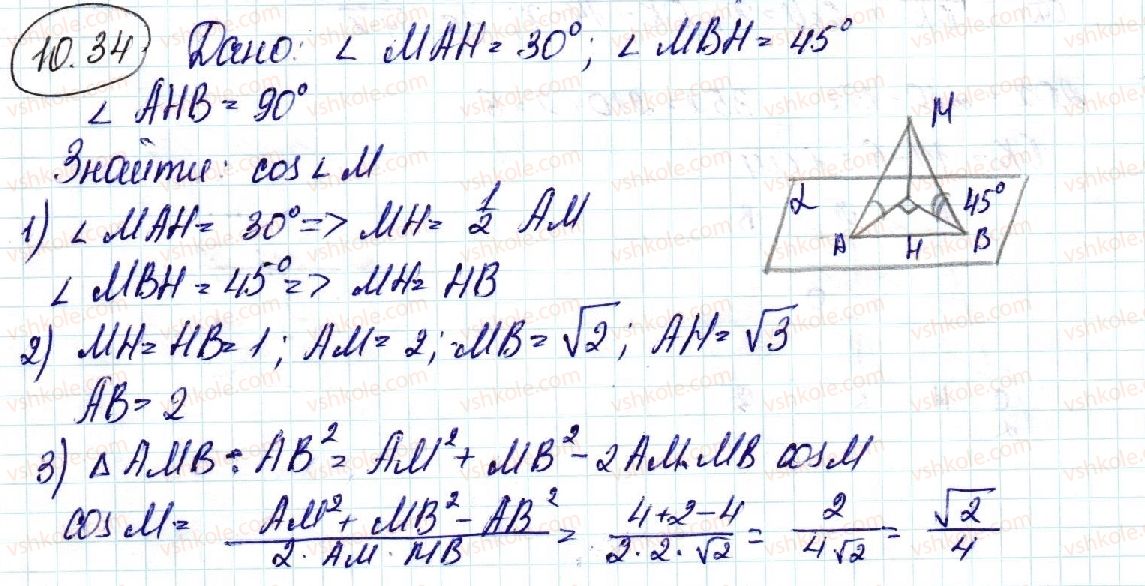 10.34 Дано: ∠ MAH = 30°; ∠ MBH = 45°
∠ AHB = 90°
Знайти: cos∠M
1) ∠ MAH = 30° => MH = 1/2 AM
∠ MBH = 45° => MH = HB
2) MH = HB = 1; AM = 2; MB = √2; AH = √3
AB = 2
3) △ AMB: AB² = AM² + MB² - 2AM·MB cosM
cosM = (AM² + MB² - AB²)/(2 · AM · MB) = (4+2-4)/(2·2·√2) = 2/(4√2) = √2/4
M
α
45°
A
H
B
vshkole.com